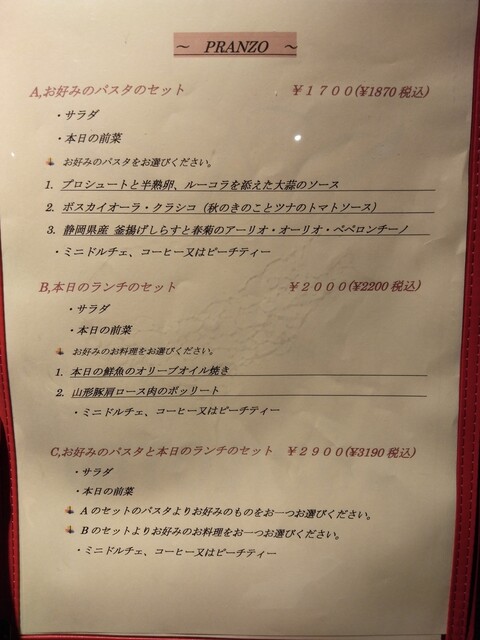 ～ PRANZO ～
A,お好みのパスタのセット ￥１７００(¥1870 税込)
・サラダ
・本日の前菜
お好みのパスタをお選びください。
1. プロシュートと半熟卵、ルーコラを添えた大蒜のソース
2. ボスカイオーラ・クラシコ（秋のきのことツナのトマトソース）
3. 静岡県産 釜揚げしらすと春菊のアーリオ・オーリオ・ペペロンチーノ
・ミニドルチェ、コーヒー又はピーチティー
B,本日のランチのセット ￥２０００(¥2200 税込)
・サラダ
・本日の前菜
お好みのお料理をお選びください。
1. 本日の鮮魚のオリーブオイル焼き
2. 山形豚肩ロース肉のボッリート
・ミニドルチェ、コーヒー又はピーチティー
C,お好みのパスタと本日のランチのセット ￥２９００(¥3190 税込)
・サラダ
・本日の前菜
Aのセットのパスタよりお好みのものをお一つお選びください。
Bのセットよりお好みのお料理をお一つお選びください。
・ミニドルチェ、コーヒー又はピーチティー